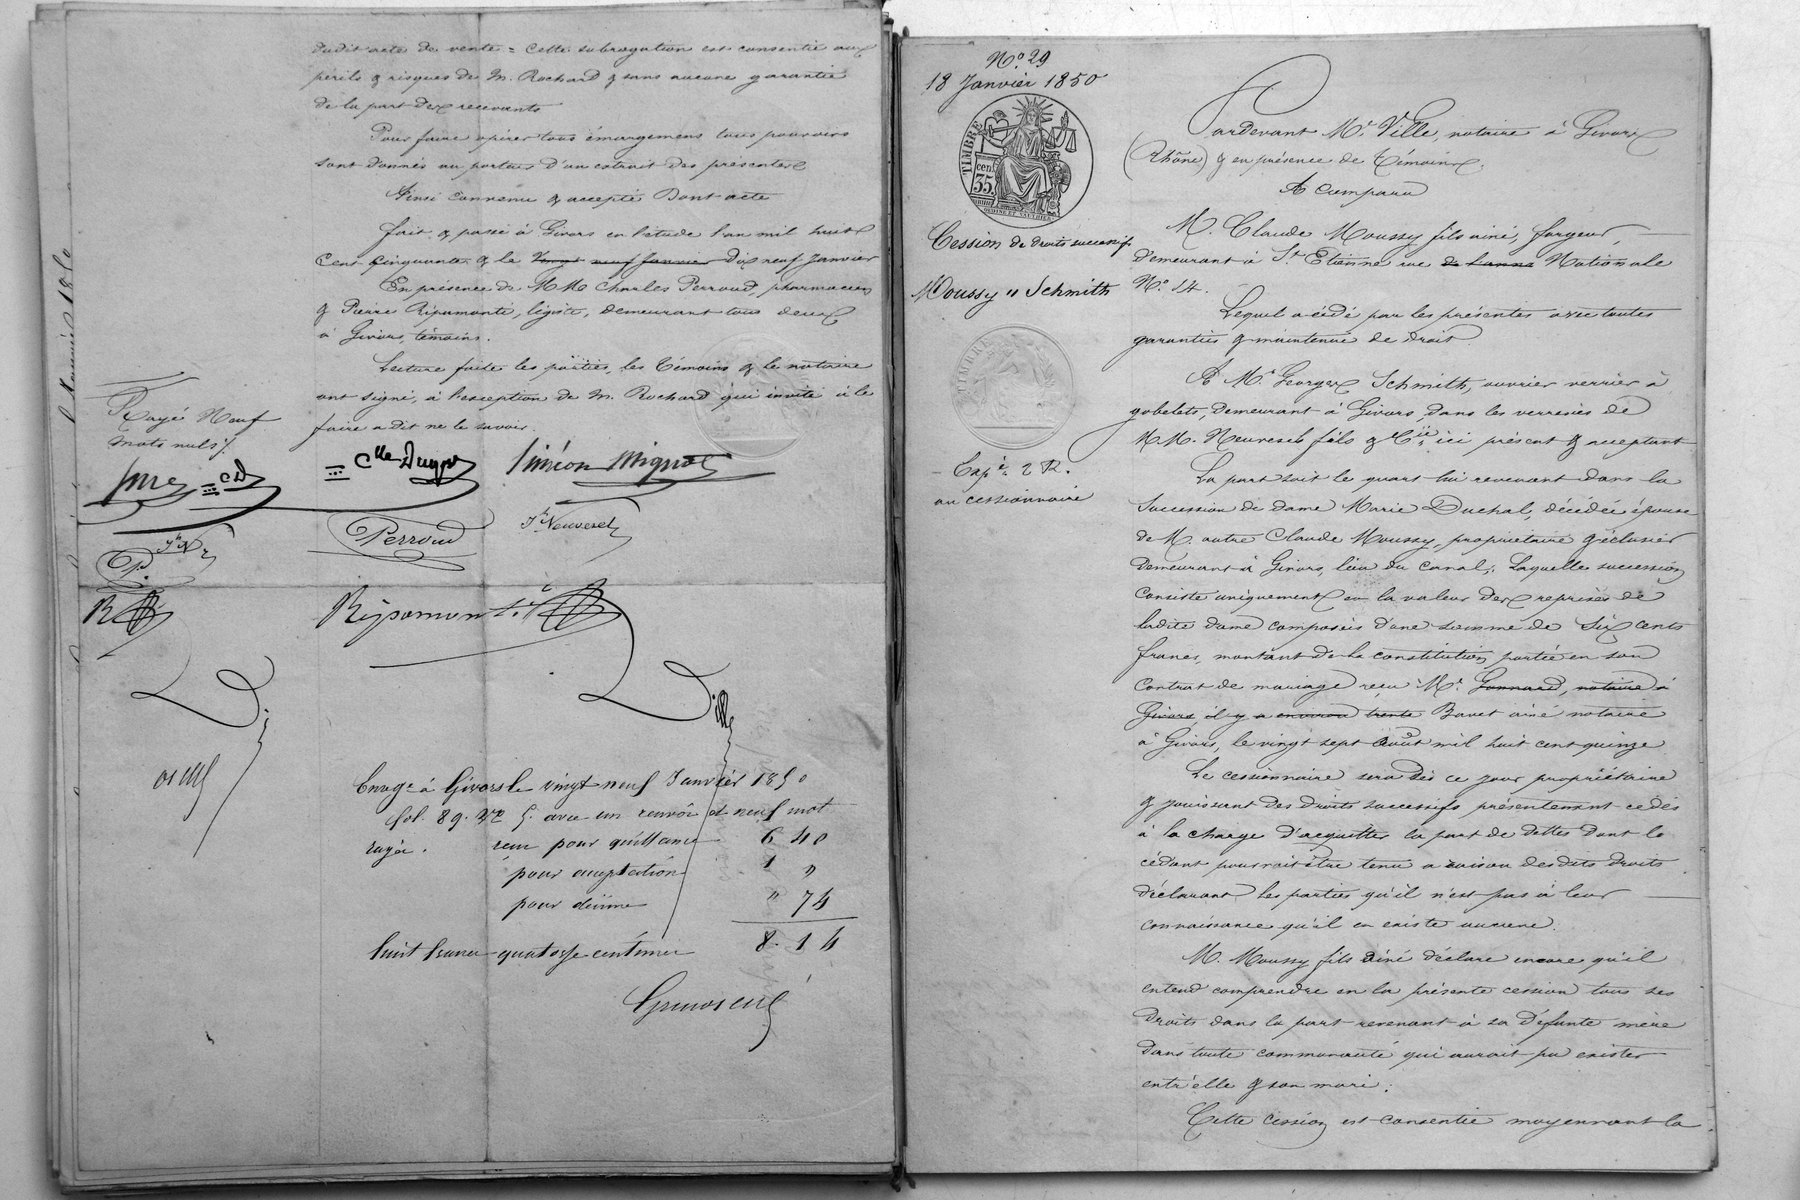 dudit acte de vente = Cette subrogation est consentie aux
périls & risques de M. Rochard & sans aucune garantie
de la part des recevants
Pour faire opérer tous émargemens tous pouvoirs
sont donnés au porteur d'un extrait des présentes
Ainsi convenu & accepté Dont acte
fait & passé à Givors en l'étude l'an mil huit
Cent cinquante & le Vingt neuf Janvier Dix neuf Janvier
En présence de MM. Charles Perroud, pharmacien
& Pierre Ripamonti, légiste, demeurant tous deux
à Givors, témoins.
Lecture faite les parties, les témoins & le notaire
ont signé, à l'exception de M. Rochard qui invité à le
faire a dit ne le savoir.
Rayé Neuf
mots nuls
Siméon Mignot
Perroud
Jh Neuvesel
Jh N
P.
R
Ripamonti
Ville
Enregé à Givors le vingt neuf Janvier 1850
fol. 89. avec un renvoi et neuf mot
rayés. reçu pour quittance 6 40
pour acceptation 1 "
pour décime " 74
huit francs quatorze centimes 8. 14
No. 29
18 Janvier 1850
TIMBRE
35 cen
Cession de droits successifs
Moussy " Schmith
TIMBRE
Expé. 2 R.
au cessionnaire
Pardevant Me. Ville, notaire à Givors
(Rhône) & en présence de témoins.
A comparu
M. Claude Moussy fils ainé, forgeur,
demeurant à St Etienne rue Nationale
No. 14.
Lequel a cédé par les présentes avec toutes
garanties & maintenue de droit
A Mr. Georges Schmith, ouvrier verrier à
gobelets, demeurant à Givors dans les verreries de
M.M. Neuvesel fils & Cie. ici présent & acceptant
La part soit le quart lui revenant dans la
succession de dame Marie Duchal, décédée épouse
de M. autre Claude Moussy, propriétaire & éclusier
demeurant à Givors, lieu du Canal; Laquelle succession
consiste uniquement en la valeur des reprises de
ladite dame composées d'une somme de Six cents
francs, montant de la constitution portée en son
contrat de mariage reçu Me. Gonnard, notaire à
Givors, il y a environ trente Bovet ainé notaire
à Givors, le vingt sept août mil huit cent quinze
Le cessionnaire sera dès ce jour propriétaire
& jouissant des droits successifs présentement cédés
à la charge d'acquitter la part de dettes dont le
cédant pourrait être tenu a raison desdits droits
déclarant les parties qu'il n'est pas à leur
connaissance qu'il en existe aucune.
M. Moussy fils ainé déclare encore qu'il
entend comprendre en la présente cession tous ses
droits dans la part revenant à sa défunte mère
dans toute communauté qui aurait pu exister
entr'elle & son mari.
Cette cession est consentie moyennant la